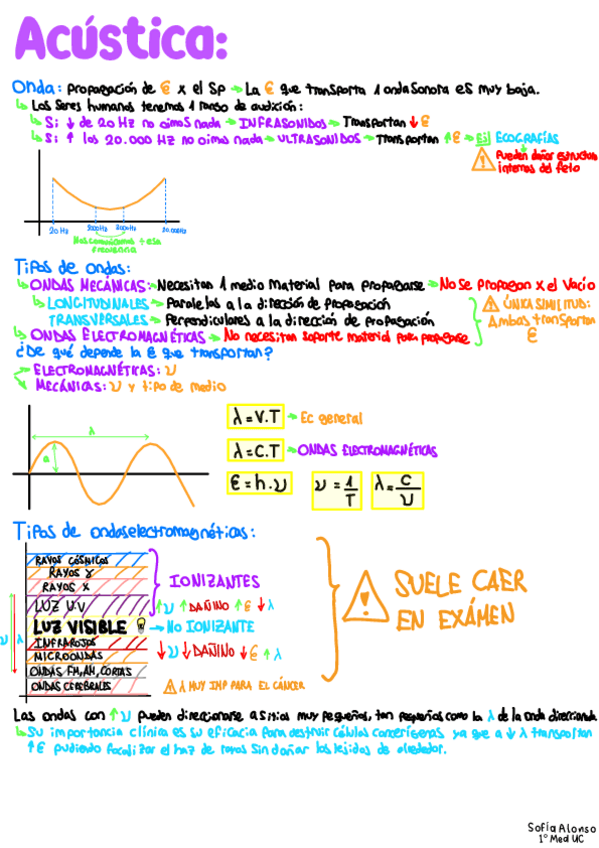 Acústica:
Onda: Propagación de E x el SP → La E que transporta 1 onda Sonora es muy baja.
↳ Los Seres humanos tenemos 1 rango de audición:
↳ Si ↓ de 20 Hz no oimos nada → INFRASONIDOS → Transportan ↓ E
↳ Si ↑ los 20.000 Hz no oimos nada → ULTRASONIDOS → Transportan ↑ E → Ej: ECOGRAFÍAS
Pueden dañar estructuras
internas del feto
20 Hz 2000Hz 3000Hz 20.000Hz
Nos comunicamos
frecuencia
Tipos de ondas:
↳ ONDAS MECÁNICAS: Necesitan 1 medio Material para propagarse → No se propagan x el Vacío
↳ LONGITUDINALES → Paralelas a la dirección de propagación
TRANSVERSALES → Perpendiculares a la dirección de propagación
ÚNICA SIMILITUD:
Ambas transportan
E
↳ ONDAS ELECTROMAGNÉTICAS → No necesitan soporte material para propagarse
¿De qué depende la E que transportan?
→ ELECTROMAGNÉTICAS: ν
→ MECÁNICAS: ν y tipo de medio
λ
a
λ = V.T → Ec general
λ = C.T → ONDAS ELECTROMAGNÉTICAS
E = h.ν ν = 1/T λ = C/ν
Tipos de ondas electromagnéticas:
RAYOS CÓSMICOS
RAYOS γ
RAYOS X
LUZ U.V
IONIZANTES
↑ν ↑DAÑINO ↑E ↓λ
LUZ VISIBLE → NO IONIZANTE
INFRAROJOS
MICROONDAS
↓ν ↓DAÑINO ↓E ↑λ
ONDAS FM, AM, CORTAS
ONDAS CEREBRALES
ν λ
MUY IMP PARA EL CÁNCER
SUELE CAER
EN EXÁMEN
Las ondas con ↑ν pueden direccionarse a sitios muy pequeños, tan pequeños como la λ de la onda direccionada
↳ Su importancia clínica es su eficacia para destruir células cancerígenas ya que a ↓λ transportan
↑E pudiendo focalizar el haz de rayos sin dañar los tejidos de alrededor.
Sofía Alonso
1º Med UC